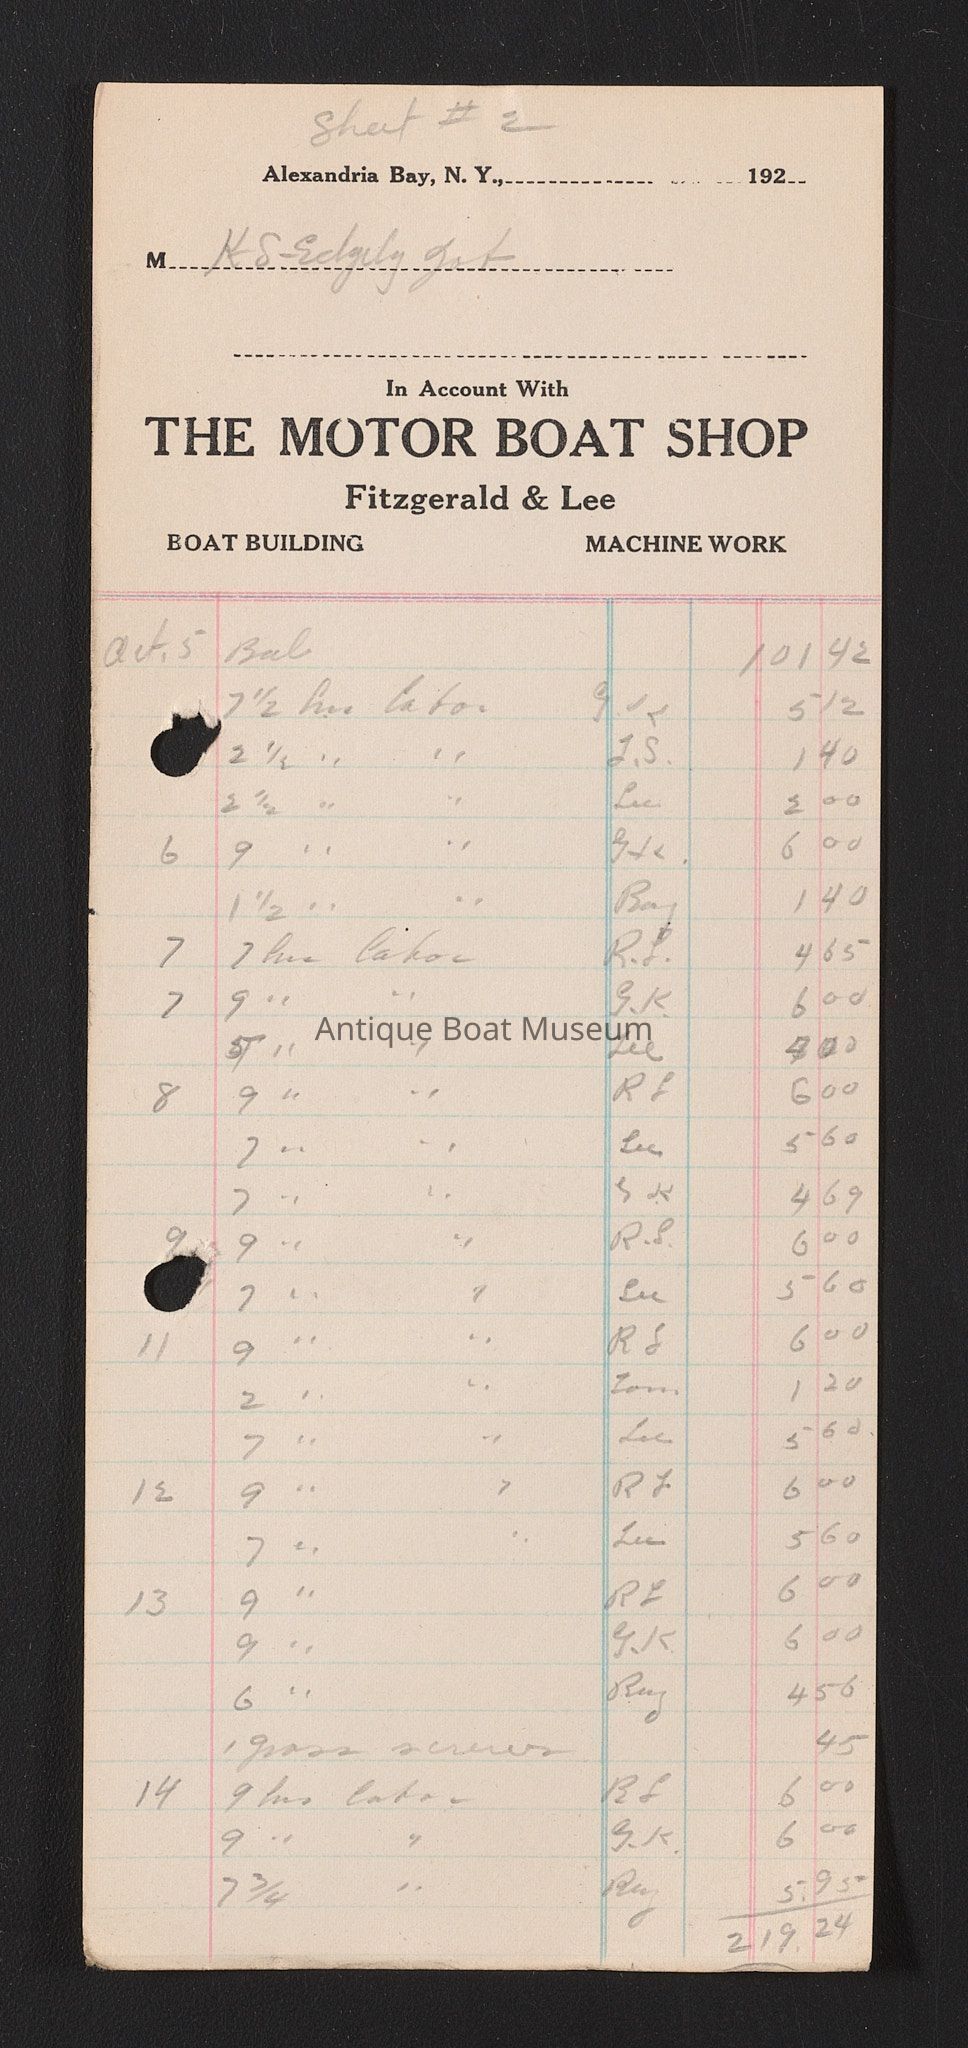 Sheet # 2
Alexandria Bay, N. Y., 192
M
In Account With
THE MOTOR BOAT SHOP
Fitzgerald & Lee
BOAT BUILDING MACHINE WORK
Oct. 5 Bal 101 42
7 1/2 hrs labor 5 12
2 1/2 " " L.S. 1 40
2 1/2 " " Lee 2 00
6 9 " " G.K. 6 00
1 1/2 " " Ray 1 40
7 7 hrs labor R.L. 4 65
7 9 " " G.K. 6 00
Antique Boat Museum
5 " " Lee 4 00
8 9 " " R L 6 00
7 " " Lee 5 60
7 " " G K 4 69
9 9 " " R.L. 6 00
7 " " Lee 5 60
11 9 " " R L 6 00
2 " " Tom 1 20
7 " " Lee 5 60
12 9 " " R L 6 00
7 " " Lee 5 60
13 9 " R L 6 00
9 " G.K. 6 00
6 " Ray 4 56
1 gross screws 45
14 9 hrs labor R L 6 00
9 " " G.K. 6 00
7 3/4 " Ray 5.95
219.24